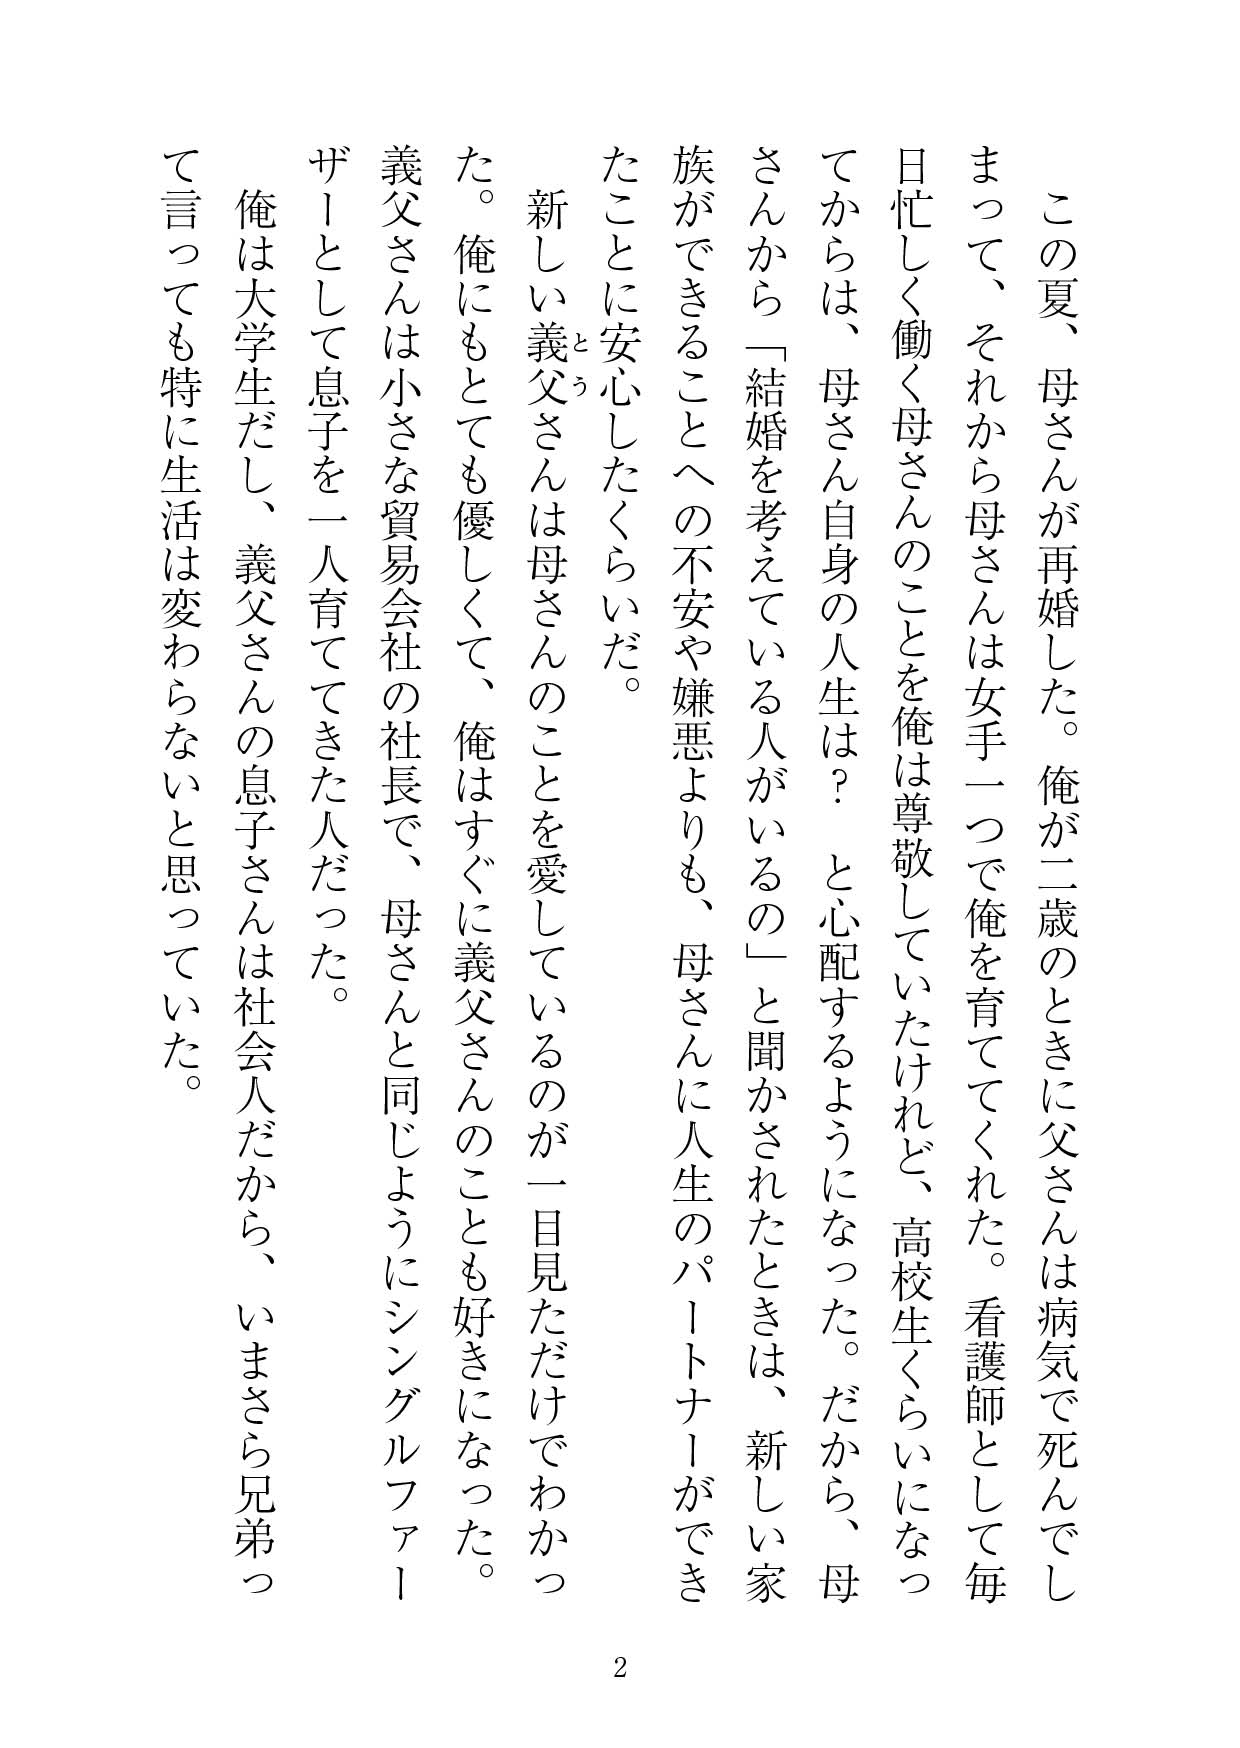 この夏、母さんが再婚した。俺が二歳のときに父さんは病気で死んでし
まって、それから母さんは女手一つで俺を育ててくれた。看護師として毎
日忙しく働く母さんのことを俺は尊敬していたけれど、高校生くらいになっ
てからは、母さん自身の人生は？　と心配するようになった。だから、母
さんから「結婚を考えている人がいるの」と聞かされたときは、新しい家
族ができることへの不安や嫌悪よりも、母さんに人生のパートナーができ
たことに安心したくらいだ。
　新しい義父とうさんは母さんのことを愛しているのが一目見ただけでわかっ
た。俺にもとても優しくて、俺はすぐに義父さんのことも好きになった。
義父さんは小さな貿易会社の社長で、母さんと同じようにシングルファー
ザーとして息子を一人育ててきた人だった。
　俺は大学生だし、義父さんの息子さんは社会人だから、いまさら兄弟っ
て言っても特に生活は変わらないと思っていた。
2